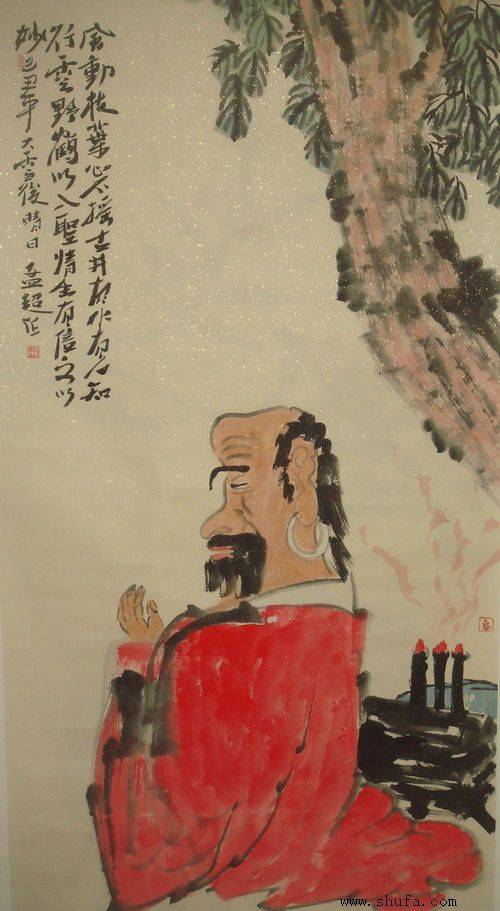 風動枝葉心不搖古井有水有人知
行雲野鶴以入聖情生有信之以
妙己丑年大雪後晴日孟超作
www.shufa.com